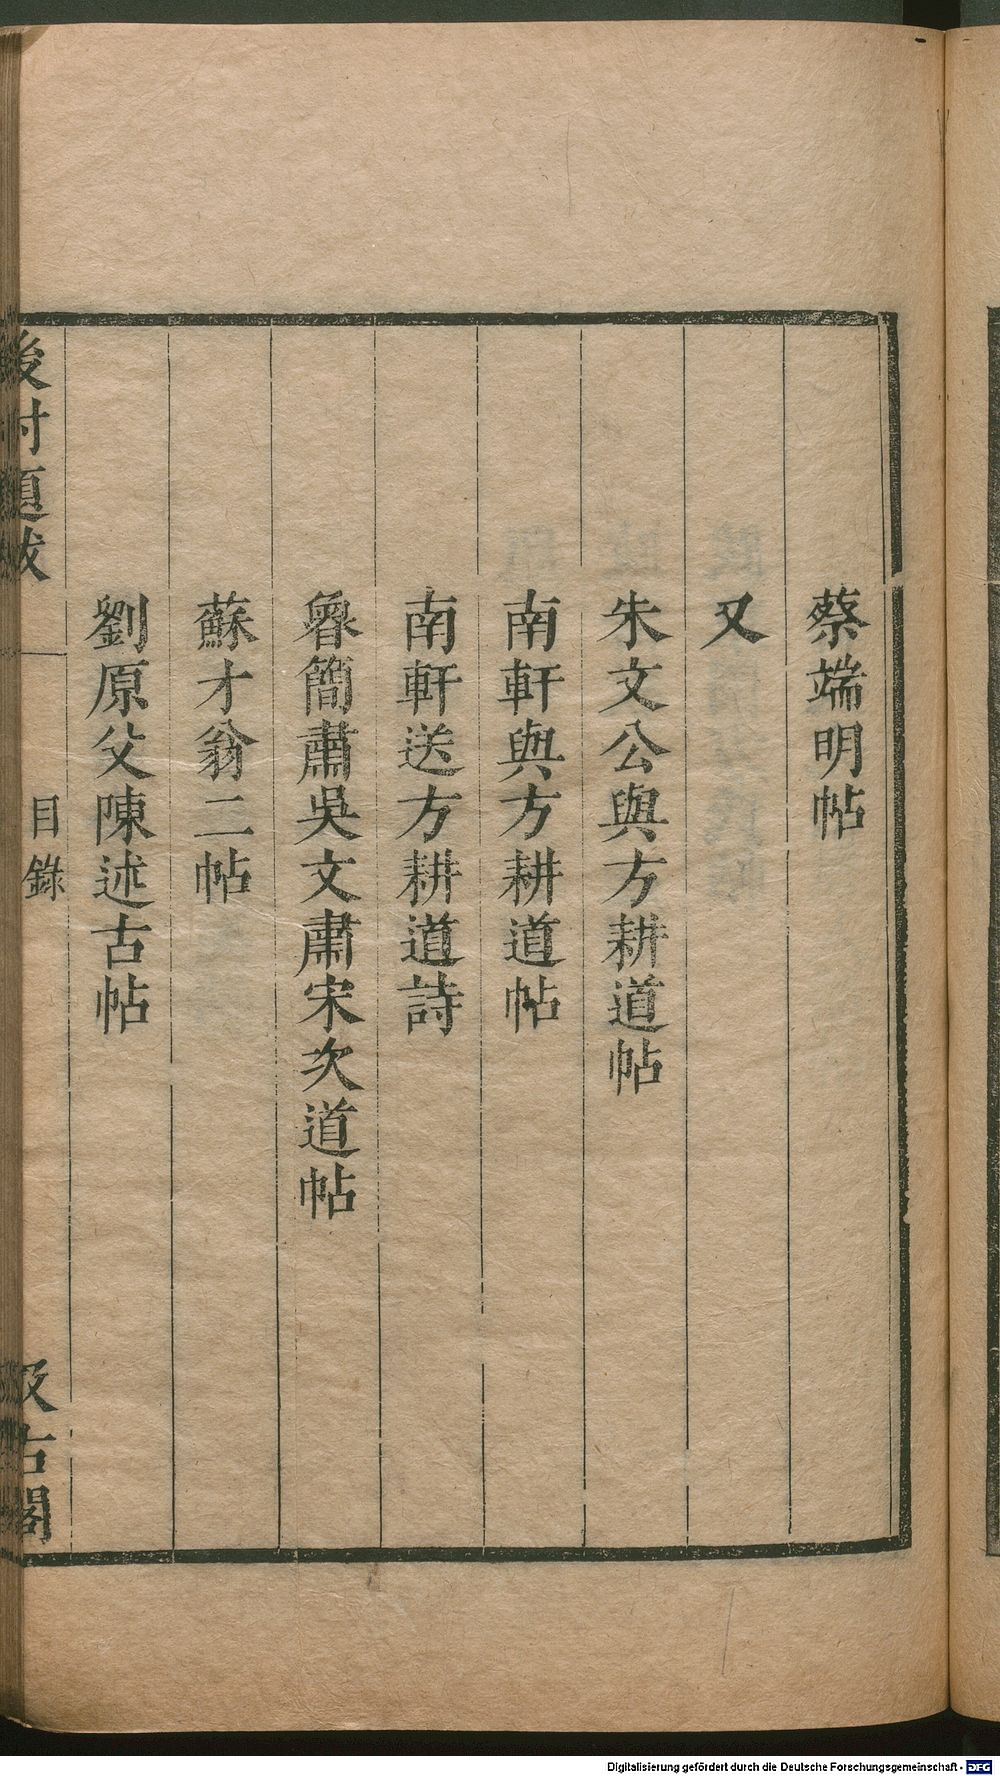 蔡端明帖
又
朱文公與方耕道帖
南軒與方耕道帖
南軒送方耕道詩
魯簡肅吳文肅宋次道帖
蘇才翁二帖
劉原父陳述古帖
後村題跋
目錄
汲古閣
Digitalisierung gefördert durch die Deutsche Forschungsgemeinschaft - DFG